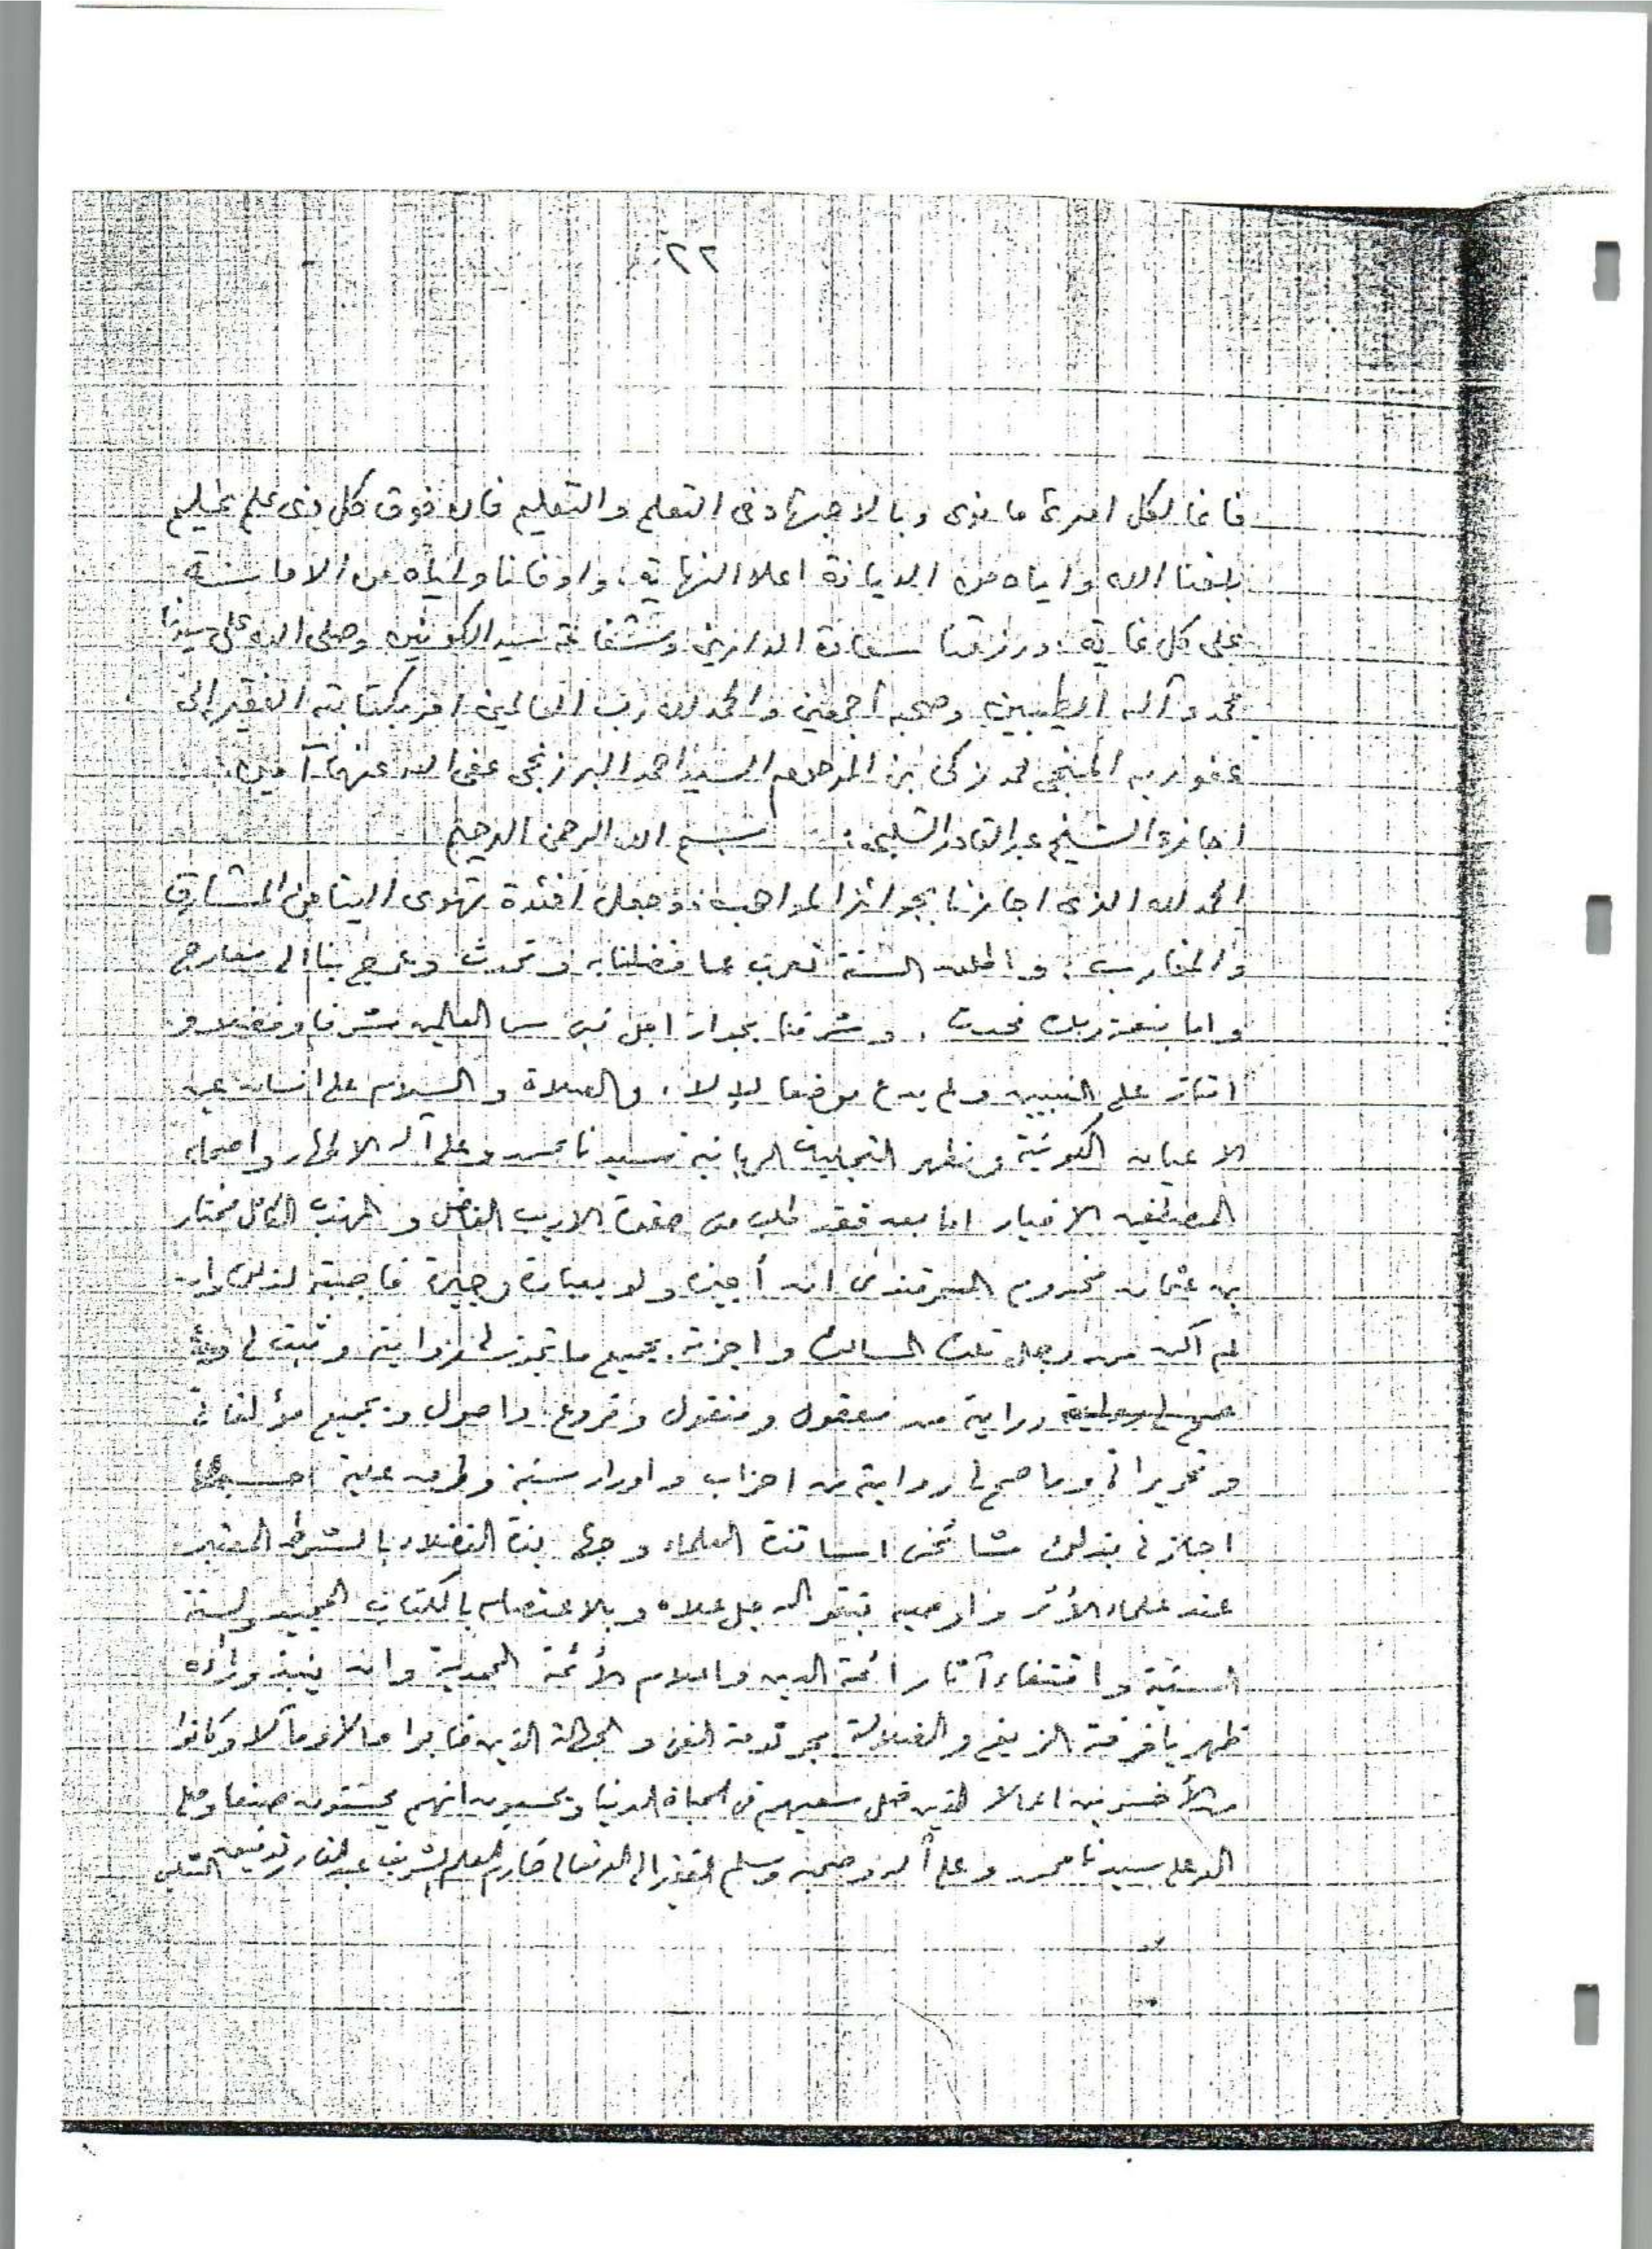 ٢٢
فانما لكل امرئ ما نوى وبالاجتهاد فى التعلم والتعليم فان فوق كل ذى علم عليم
بلغنا الله واياه من الديانة اعلا النهاية، واوقانا واياه من الاما
على كل غاية، ورزقنا سعادة الدارين وشفاعة سيد الكونين وصلى الله على سيدنا
محمد وآله الطيبين وصحبه أجمعين والحمد لله رب العالمين امر بكتابته الفقير إلى
عفو ربه المنجى محمد زكى بن المرحوم السيد احمد البرزنجى عفى الله عنهما آمين.
اجازة الشيخ عبد القادر الشلبى: بسم الله الرحمن الرحيم
الحمد لله الذى اجازنا بجوائز المواهب، وجعل افئدة تهوى الينا من المشارق
والمغارب، واطلق السنة تعرب عما فضلنا به وتحدث وتعرج بنا الى معارج
واما بنعمة ربك فحدث، وشرفنا بجوار اجل نبى سما العالمين شرفا وفضلا و
امتاز على النبيين ولم يدع موضعا لإلا، والصلاة والسلام على انسان عين
الاعيان الكونية ومظهر التجليات الربانية سيدنا محمد وعلى آله الاطهار واصحابه
المصطفين الاخيار اما بعد فقد طلب منى حضرة الاريب الفاضل و المهذب الكامل مختار
بن عثمان مخدوم السمرقندى ان أجيزه ولو بعبارة وجيزة فاجبته لذلك وان
لم اكن من رجال تلك المسالك واجزته بجميع ما تجوز لى روايته وثبت لى و
دراية من معقول ومنقول وفروع واصول وبجميع مؤلفاتى
وتحريراتى وما صح لى روايته من احزاب واوراد سنية وطرق علية حسبما
اجازنى بذلك مشائخى اساتذة العلماء وجهابذة الفضلاء بالشرط المعتبر
عند علماء الأثر واوصيه بتقوى الله جل علاه وبالاعتصام بالكتاب المجيد والسنة
السنية واقتفاء آثار ائمة الدين واعلام الأئمة المحمدية وان ينبذ وراءه
ظهريا فرقة الزيغ والضلالة الغى والجهالة الذين خابوا حالا ومآلا وكانوا
من الأخسرين اعمالا الذين ضل سعيهم فى الحياة الدنيا ويحسبون انهم يحسنون صنعا وصلى
الله على سيدنا محمد وعلى آله وصحبه وسلم الفقير الى الله تعالى خادم العلم الشريف عبد القادر توفيق الشلبى